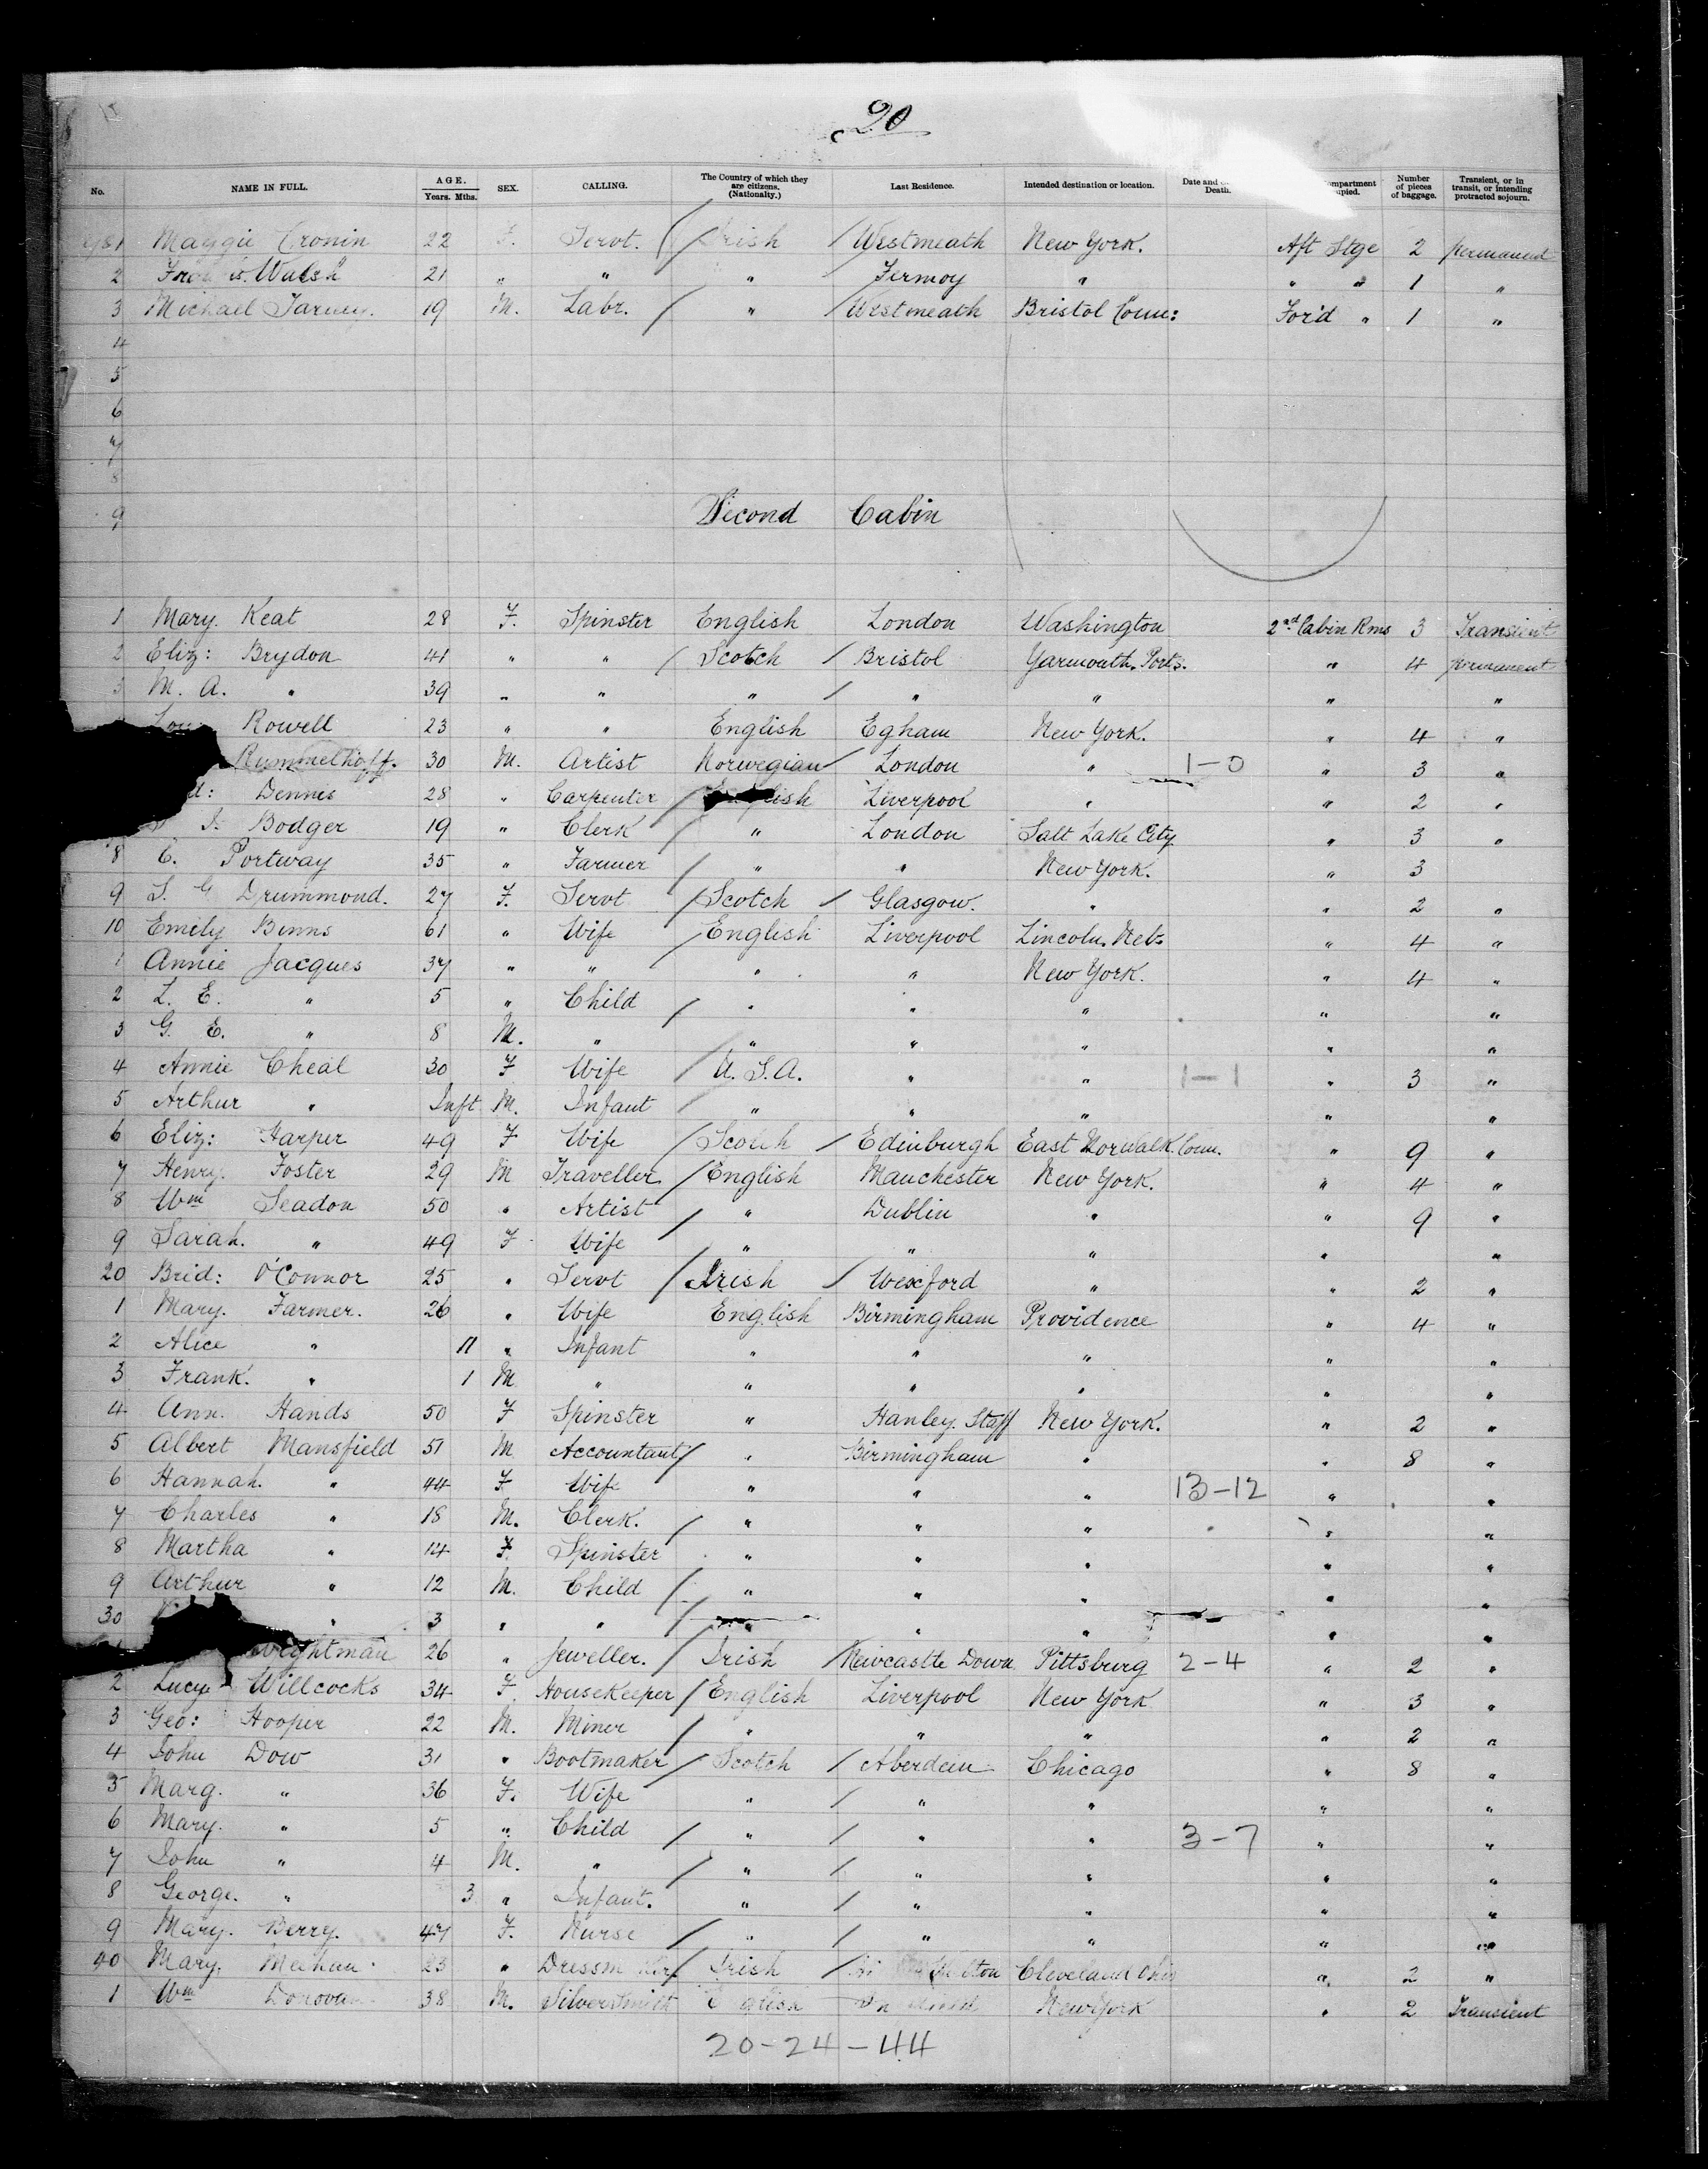 20
No. NAME IN FULL. AGE. Years. Mths. SEX. CALLING. The Country of which they are citizens. (Nationalty.) Last Residence. Intended destination or location. Date and Death. compartment upied. Number of pieces of baggage. Transient, or in transit, or intending protracted sojourn.
1 Maggie Cronin 22 F. Servt. Irish Westmeath New York. Aft Stge 2 permanent
2 Walsh 21 " " " Fermoy " " " 1 "
3 Michael 19 M. Labr. " Westmeath Bristol Conn: For'd " 1 "
4
5
6
7
8
9 Second Cabin
1 Mary. Keat 28 F. Spinster English London Washington 2nd Cabin Rms 3 Transient
2 Eliz: Brydon 41 " " Scotch Bristol Yarmouth, Ports. " 4 permanent
3 M. A. " 39 " " " " " " "
Rowell 23 " " English Egham New York. " 4 "
Rummelhoff. 30 M. Artist Norwegian London " 1-0 " 3 "
d: Dennes 28 " Carpenter English Liverpool " " 2 "
Bodger 19 " Clerk " London Salt Lake City " 3 "
8 C. Portway 35 " Farmer " " New York. " 3
9 S. G Drummond. 27 F. Servt Scotch Glasgow. " " 2 "
10 Emily Binns 61 " Wife English Liverpool Lincoln. Neb. " 4 "
1 Annie Jacques 37 " " " " New York. " 4 "
2 L. E. " 5 " Child " " " " "
3 G. E. " 8 M. " " " " " "
4 Annie Cheal 30 F Wife U.S.A. " " 1-1 " 3 "
5 Arthur " Inft M. Infant " " " " "
6 Eliz: Harper 49 F Wife Scotch Edinburgh East Norwalk. Conn. " 9 "
7 Henry. Foster 29 M Traveller English Manchester New York. " 4 "
8 Wm Seadon 50 " Artist " Dublin " " 9 "
9 Sarah. " 49 F Wife " " " " "
20 Brid: O'Connor 25 " Servt Irish Wexford " " 2 "
1 Mary. Farmer. 26 " Wife English Birmingham Providence " 4 "
2 Alice " 11 " Infant " " " " "
3 Frank. " 1 M " " " " " "
4 Ann. Hands 50 F Spinster " Hanley. Staff New York. " 2 "
5 Albert Mansfield 51 M Accountant " Birmingham " " 8 "
6 Hannah. " 44 F Wife " " " 13-12 " "
7 Charles " 18 M. Clerk. " " " " "
8 Martha " 14 F. Spinster " " " " "
9 Arthur " 12 M. Child " " " " "
30 " 3 " " " " " " "
Wightman 26 " Jeweller. Irish Newcastle Down Pittsburg 2-4 " 2 "
2 Lucy Willcocks 34 F. Housekeeper English Liverpool New York " 3 "
3 Geo: Hooper 22 M. Miner " " " " 2 "
4 John Dow 31 " Bootmaker Scotch Aberdein Chicago " 8 "
5 Marg. " 36 F. Wife " " " " "
6 Mary. " 5 " Child " " " 3-7 " "
7 John " 4 M. " " " " " "
8 George. " 3 " Infant. " " " " "
9 Mary. Berry. 47 F. Nurse " " " " "
40 Mary. Meehan 23 " Irish Cleveland Ohio " 2 "
1 Wm Donovan 38 M. Silversmith English New York " 2 Transient
20-24-44